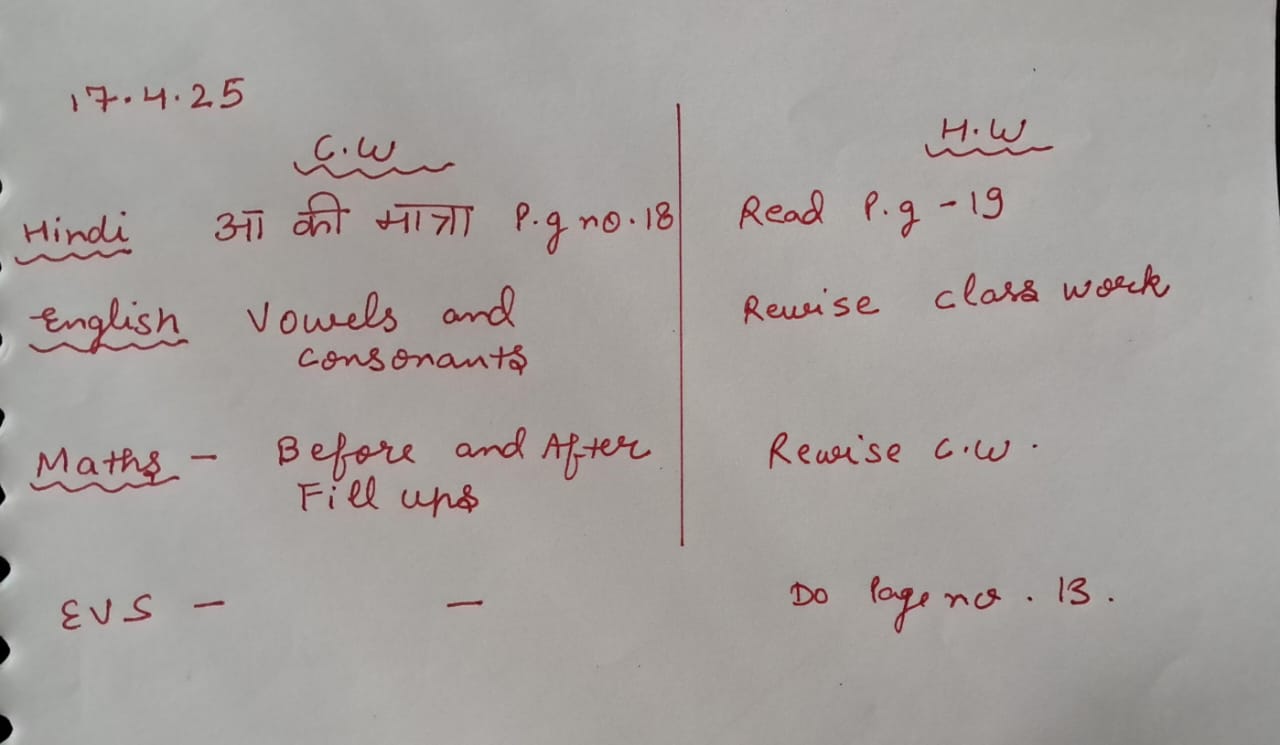 17.4.25
C.W H.W
Hindi आ की मात्रा P.g no.18 Read P.g -19
English Vowels and Revise class work
consonants
Maths - Before and After Revise C.W.
Fill ups
EVS - - Do Page no. 13.